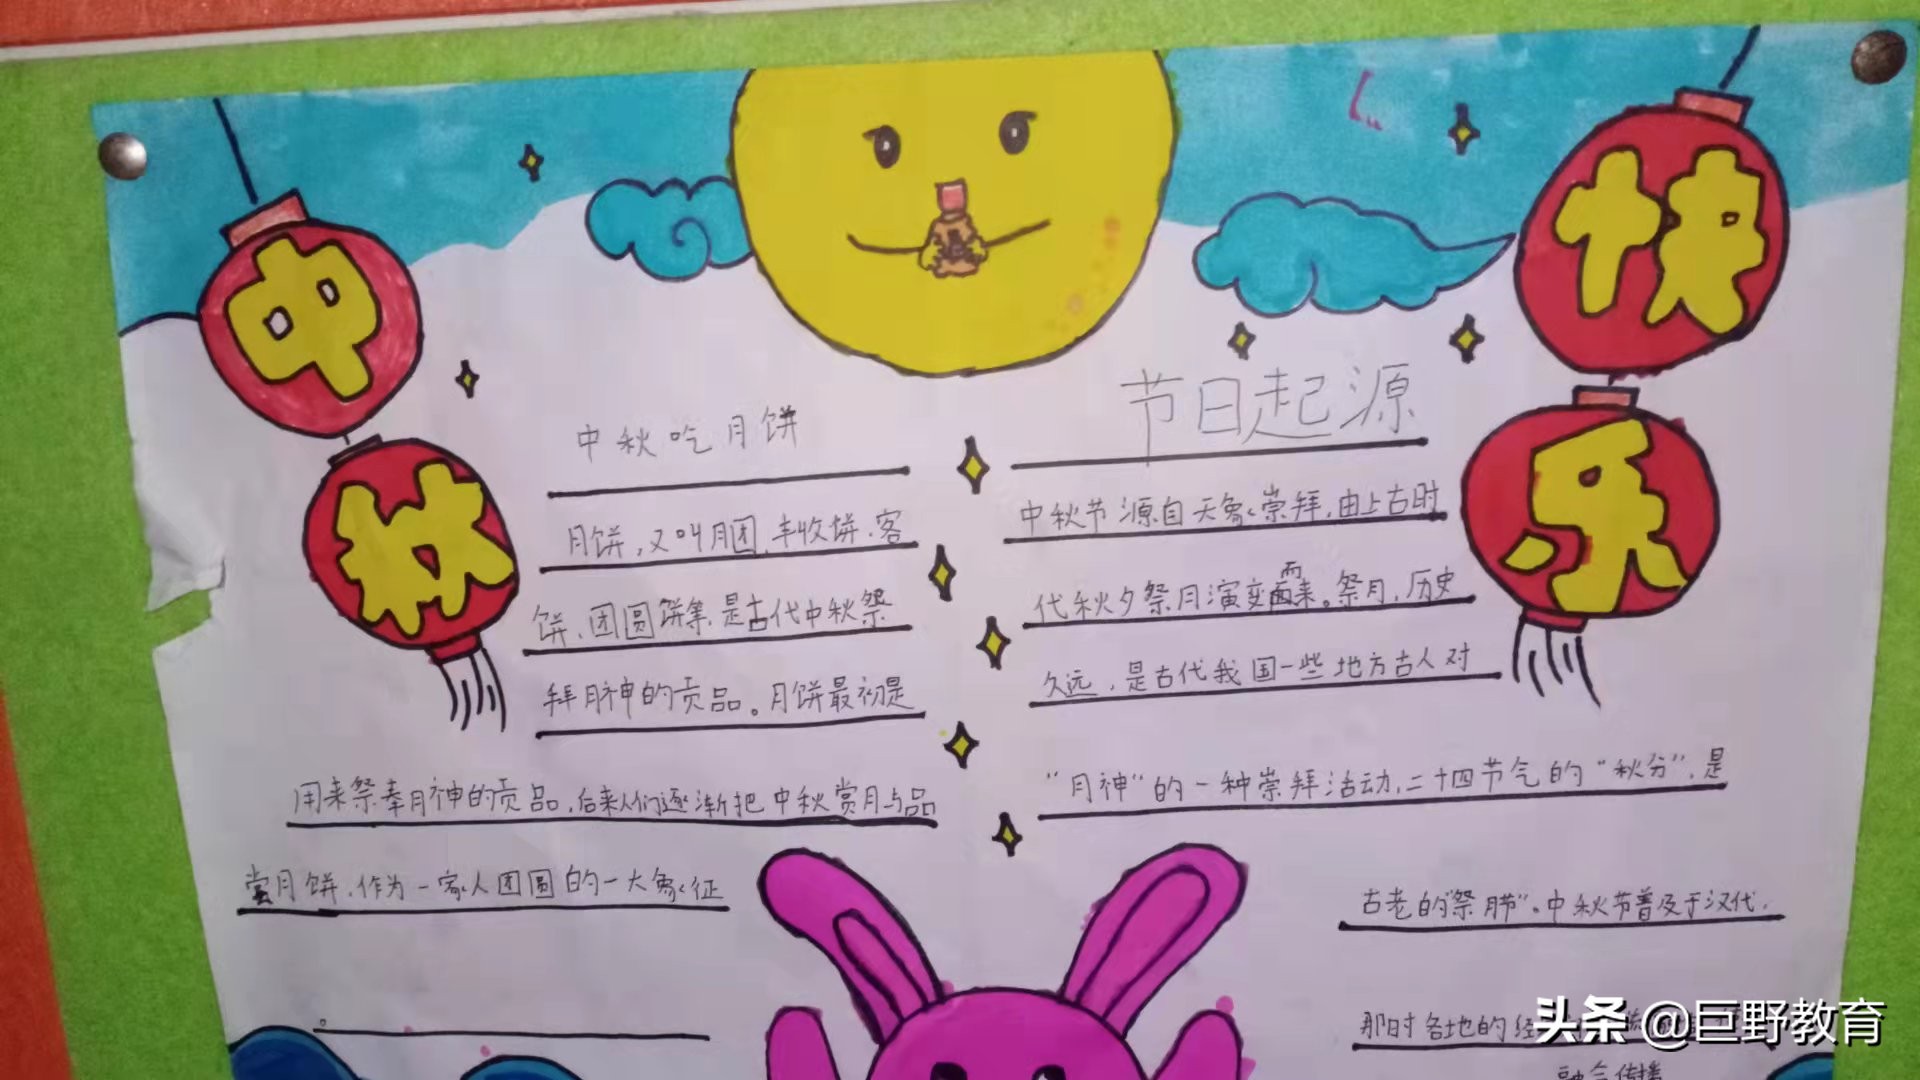 中秋
快乐
中秋吃月饼
月饼,又叫月团,丰收饼,客
饼,团圆饼等,是古代中秋祭
拜月神的贡品。月饼最初是
用来祭奉月神的贡品,后来人们逐渐把中秋赏月与品
尝月饼,作为一家人团圆的一大象征
。
节日起源
中秋节源自天象崇拜,由上古时
代秋夕祭月演变而来。祭月,历史
久远,是古代我国一些地方古人对
“月神”的一种崇拜活动,二十四节气的“秋分”,是
古老的“祭月节”。中秋节普及于汉代,
那时各地的经
融合传播
头条 @巨野教育